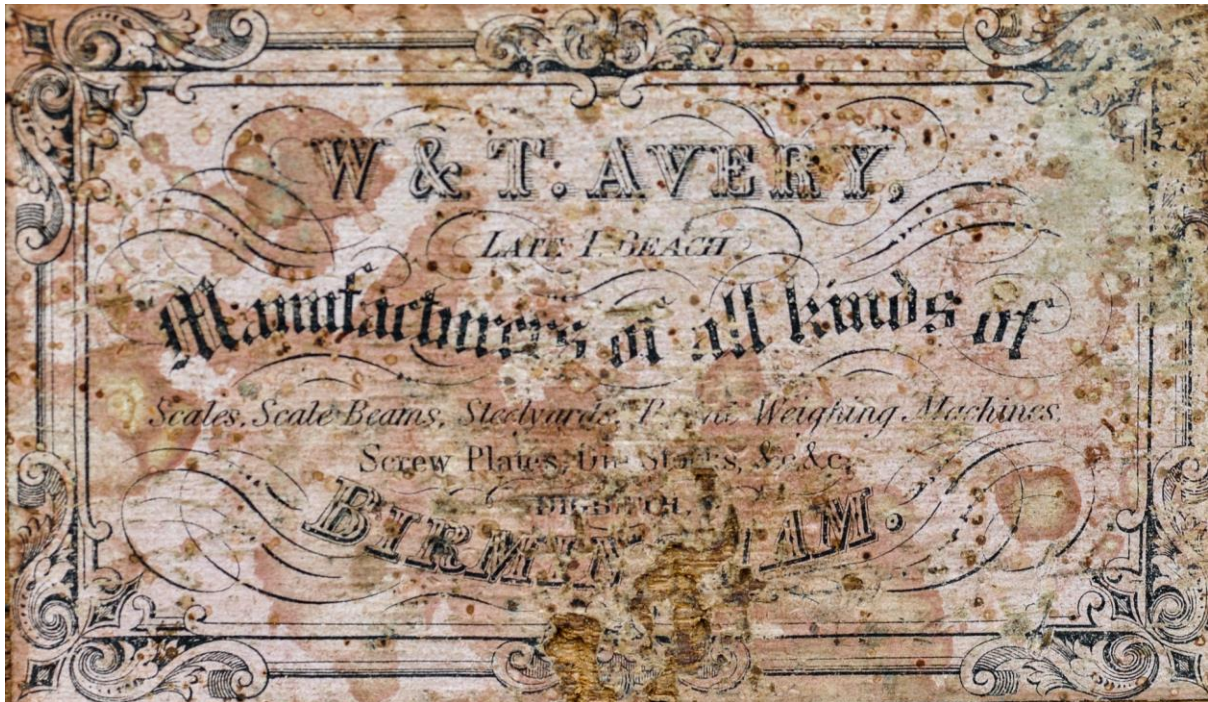 W & T. AVERY,
LATE T BEACH
Manufacturers of all kinds of
Scales, Scale Beams, Steelyards, Weighing Machines,
Screw Plates, Die Stocks, &c. &c.
DIGBETH,
BIRMINGHAM.